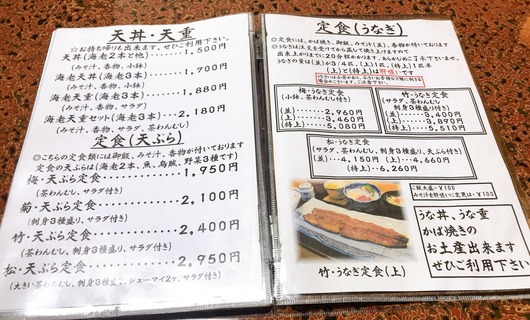 天丼・天重
☆お持ち帰りも出来ます、ぜひご利用下さい。
天丼(海老2本と他)・・・・・1,500円
(みそ汁、香物、小鉢)
海老天丼(海老3本)・・・・・1,700円
(みそ汁、香物、小鉢)
海老天重(海老3本)・・・・・1,880円
(みそ汁、香物、サラダ)
海老天重セット(海老3本)・・・2,180円
(みそ汁、香物、サラダ、茶わんむし)
定食(天ぷら)
◎こちらの定食類には御飯、みそ汁、香物が付いております
定食の天ぷらは(海老2本、魚、烏賊、野菜3種です)
梅・天ぷら定食・・・・・・・・1,950円
(茶わんむし、サラダ付き)
菊・天ぷら定食・・・・・・・・2,100円
(刺身3種盛り、サラダ付き)
竹・天ぷら定食・・・・・・・・2,400円
(茶わんむし、刺身3種盛り、サラダ付き)
松・天ぷら定食・・・・・・・・2,950円
(大きい茶わんむし、刺身3種盛り、シューマイ2ケ、サラダ付き)
定食(うなぎ)
◎定食には、かば焼き、御飯、みそ汁(並)、香物が付いております
◎うなぎは注文を受けてから蒸して焼き上げますので
出来上がりまでに20分程かかります。あらかじめご了承下さいませ。
うなぎの量は(並)が3/4匹、(上)1匹、(特上)1匹半
(上)と(特上)は肝吸い です
梅・うなぎ定食
(小鉢、茶わんむし付き)
(並)・・・・・2,960円
(上)・・・・・3,460円
(特上)・・・・5,080円
竹・うなぎ定食
(サラダ、刺身3種盛り、茶わんむし付き)
(並)・・・・・3,400円
(上)・・・・・3,890円
(特上)・・・・5,510円
松・うなぎ定食
(サラダ、茶わんむし、刺身3種盛り、天ぷら付き)
(並)・・・4,150円 (上)・・・4,660円
(特上)・・・6,260円
ご飯大盛=¥100
みそ汁を肝吸いに変更は=¥100
うな丼、うな重
かば焼きの
お土産出来ます
ぜひご利用下さい
竹・うなぎ定食(上)